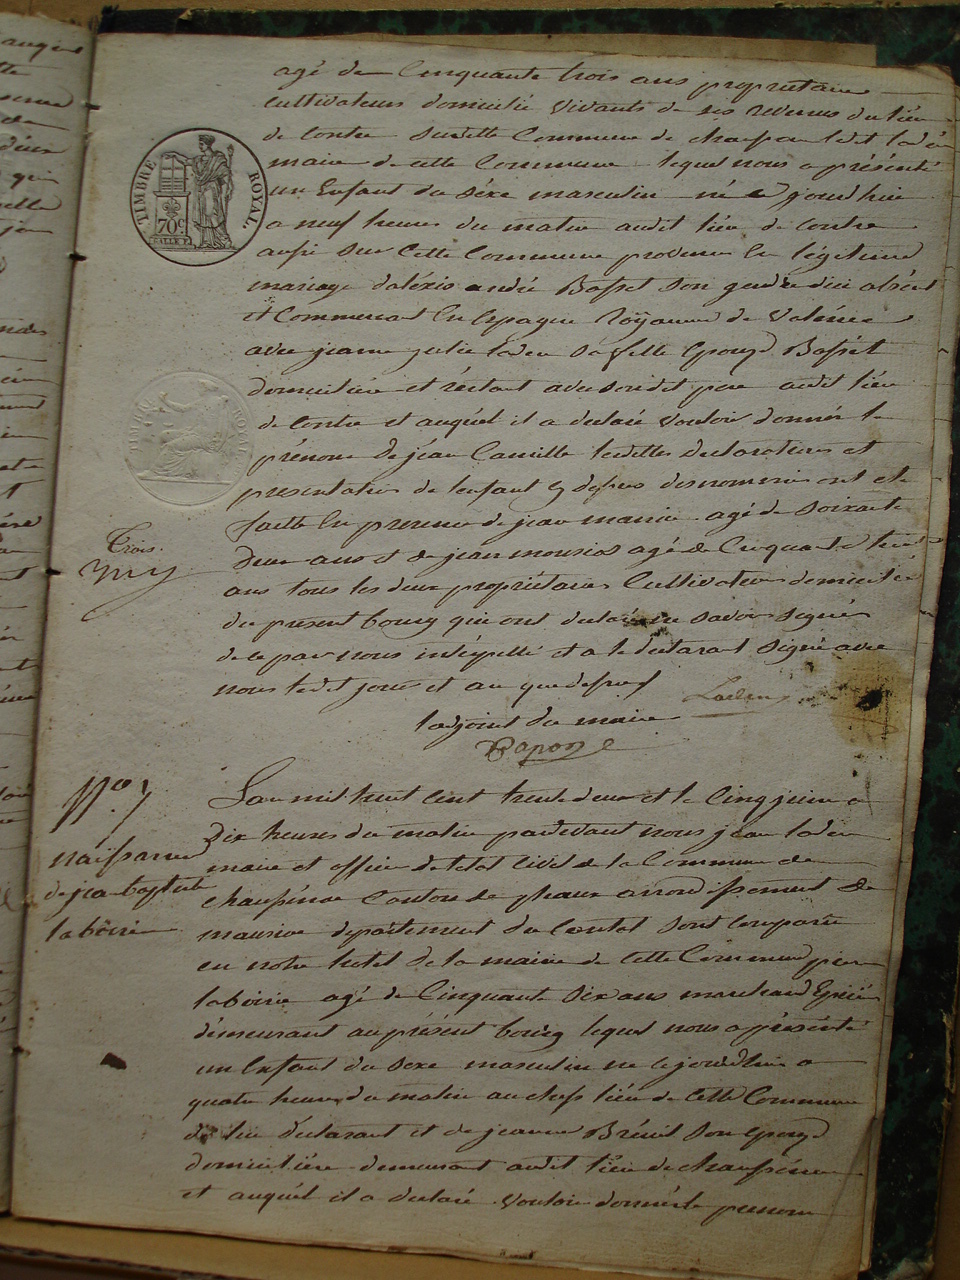 agé de Cinquante trois ans propriétaire
cultivateurs domicilié vivants de ses revenus du lieu
de Contre Susditte Commune de
maire de cette Commune lequel nous a présenté
un Enfant du Séxe masculin né ce jourdhui
a neuf heures du matin audit lieu de Contre
aussi Sur Cette Commune provenu En légitime
mariage d'aléxis andré Basset Son gendre dici absént
et Commercant En Espagne Roÿaume de Valénce
avec jeanne julie laden Sa fille Epouze Bassét
domiciliée et réstant avec Sondit pere audit lieu
de Contre et auquél il a declaré vouloir donnér le
prénom de jéan Camille lesdittes declarations et
présentation de lenfant cy dessus desnommé ont eté
faitte En presence de jean agé de Soixante
Deux ans et de jean agé de Cinquante
ans tous les deux propriétaires Cultivateurs domiciliés
du présent bourg qui ont declaré ne Savoir Signér
de ce par nous intérpellé et a le déclarant Signé avec
nous ledit jour et an que dessus
ladjoint du maire
TIMBRE ROYAL
70c
Trois
No. 7
naissance
de jea baptiste
laboirie
Lan mil huit cent trente deux et le Cinq juin a
Dix heures du matin pardevant nous jean laden
maire et officier de létat Civil de la Commune de
Canton de arrondissement de
mauriac départément du Cantal Sont Comparu
en notre hotel de la maire de cette Commune
laboirie agé de Cinquante Six ans marchand Epicier
démeurant au présent bourg lequel nous a présenté
un Enfant du Sexe masculin né ce jourdhui a
quatre heures du matin au chef lieu de Cette Commune
de lui déclarant et de jeanne Bréuil Son Epouze
domiciliée demeurant audit lieu de
et auquél il a declaré vouloir donnér le prenom